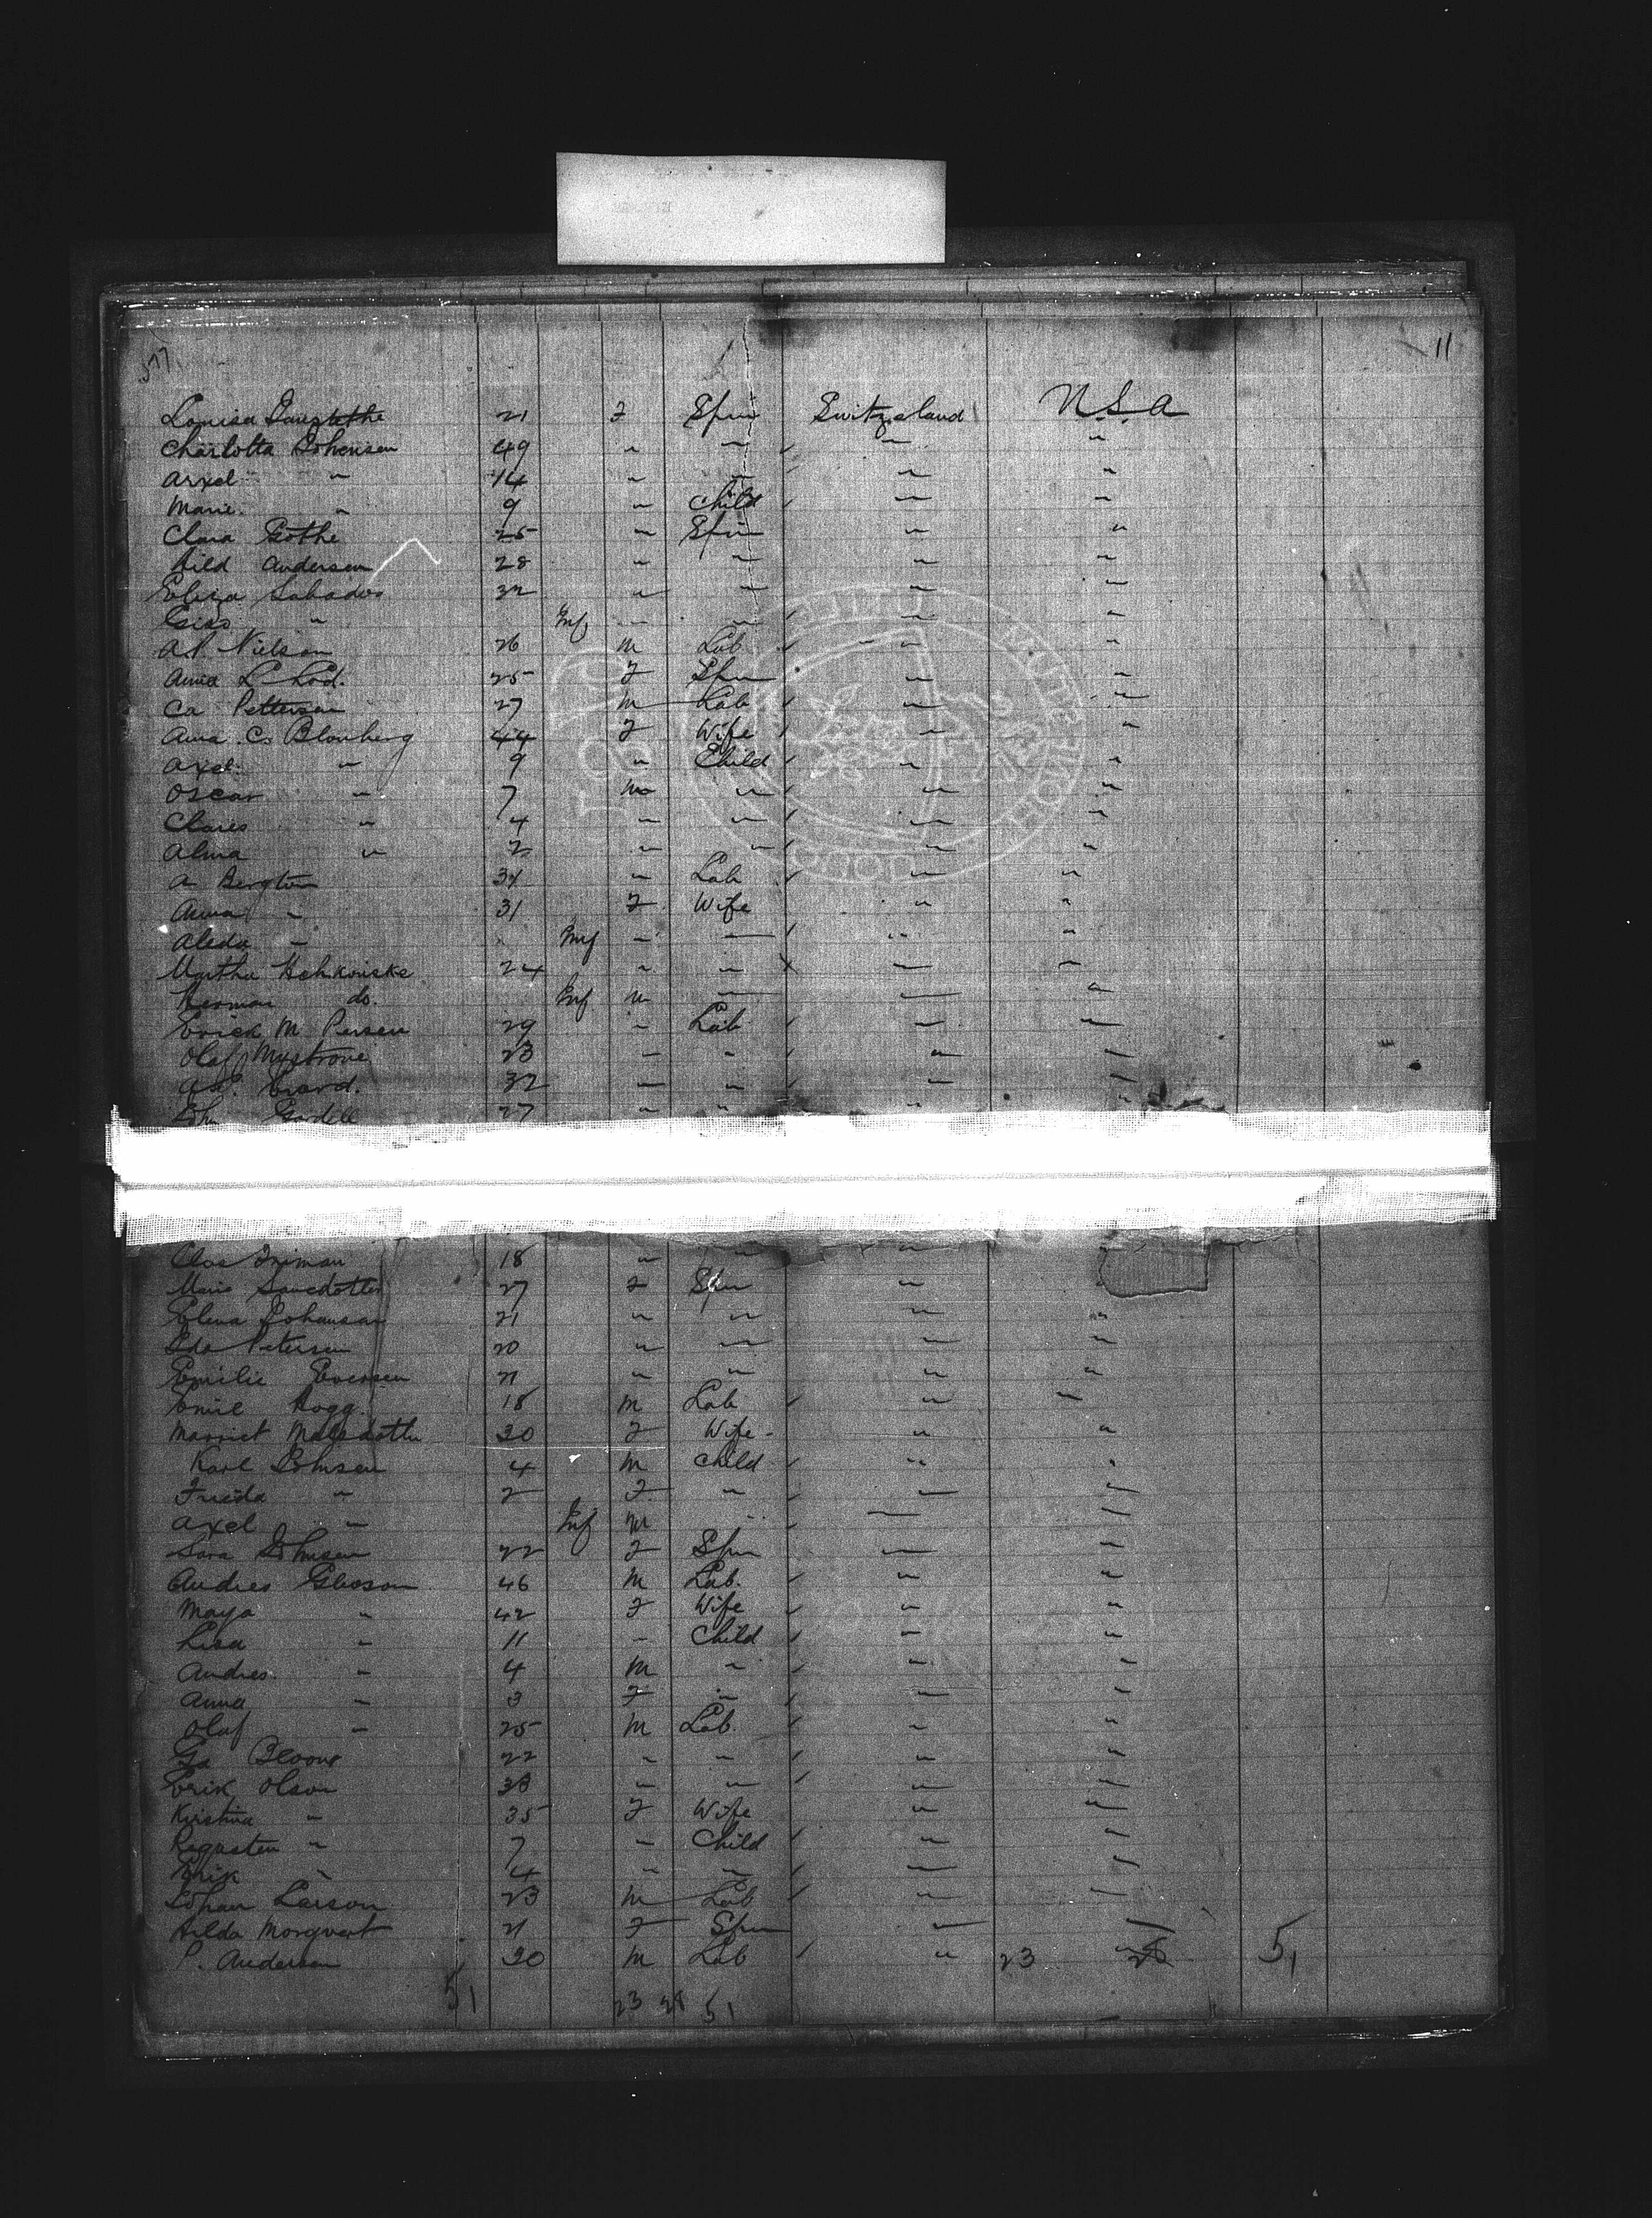 377 11
Louisa 21 F Spin Switzeland USA
Charlotta Johensen 49 " " " "
Arxel " 14 " " " "
Marie " 9 " Child " "
Clara Gothe 25 " Spin " "
Hild Andersen 28 " " " "
Eliza Sabados 32 " " " "
" Inf " " " "
A. P. Nielson 26 M Lab " "
Anna L Lod. 25 F Spin " "
Ca Petterson 27 M Lab " "
Anna C. Blomberg 44 F Wife " "
Axel " 9 " Child " "
Oscar " 7 M " " "
Clares " 4 " " " "
Alma " 2 " " " "
A Bergton 31 " Lab " "
Anna " 31 F Wife " "
Aleda " Inf " " " "
Martha 24 " " " "
Herman do. Inf M " " "
Erick M Persen 29 " Lab " "
Olaf 23 " " " "
32 " " " "
John Gardell 27 " " " "
Clas Friman 18 " " "
Maria 27 F Spin "
Elena Johansan 21 " " " "
Ida Petersen 20 " " " "
Emilie Evensen 21 " " " "
Emil Rogg 18 M Lab " "
Marriet 30 F Wife " "
Karl Johnsen 4 M Child " "
Frieda " 2 F " " "
Axel " Inf M " " "
Sara Johnsen 22 F Spin " "
Andres 46 M Lab. " "
Maya " 42 F Wife " "
Lisa " 11 " Child " "
Andres " 4 M " " "
Anna " 3 F " " "
Olaf " 25 M Lab. " "
22 " " " "
Erik Olson 38 " " " "
Kristina " 35 F Wife " "
" 7 " Child " "
Erik " 4 " " " "
Johan Larson 23 M Lab " "
Hilda Morqvert 21 F Spin "
P. Andersen 30 M Lab " 23 28 51
51 23 28 51